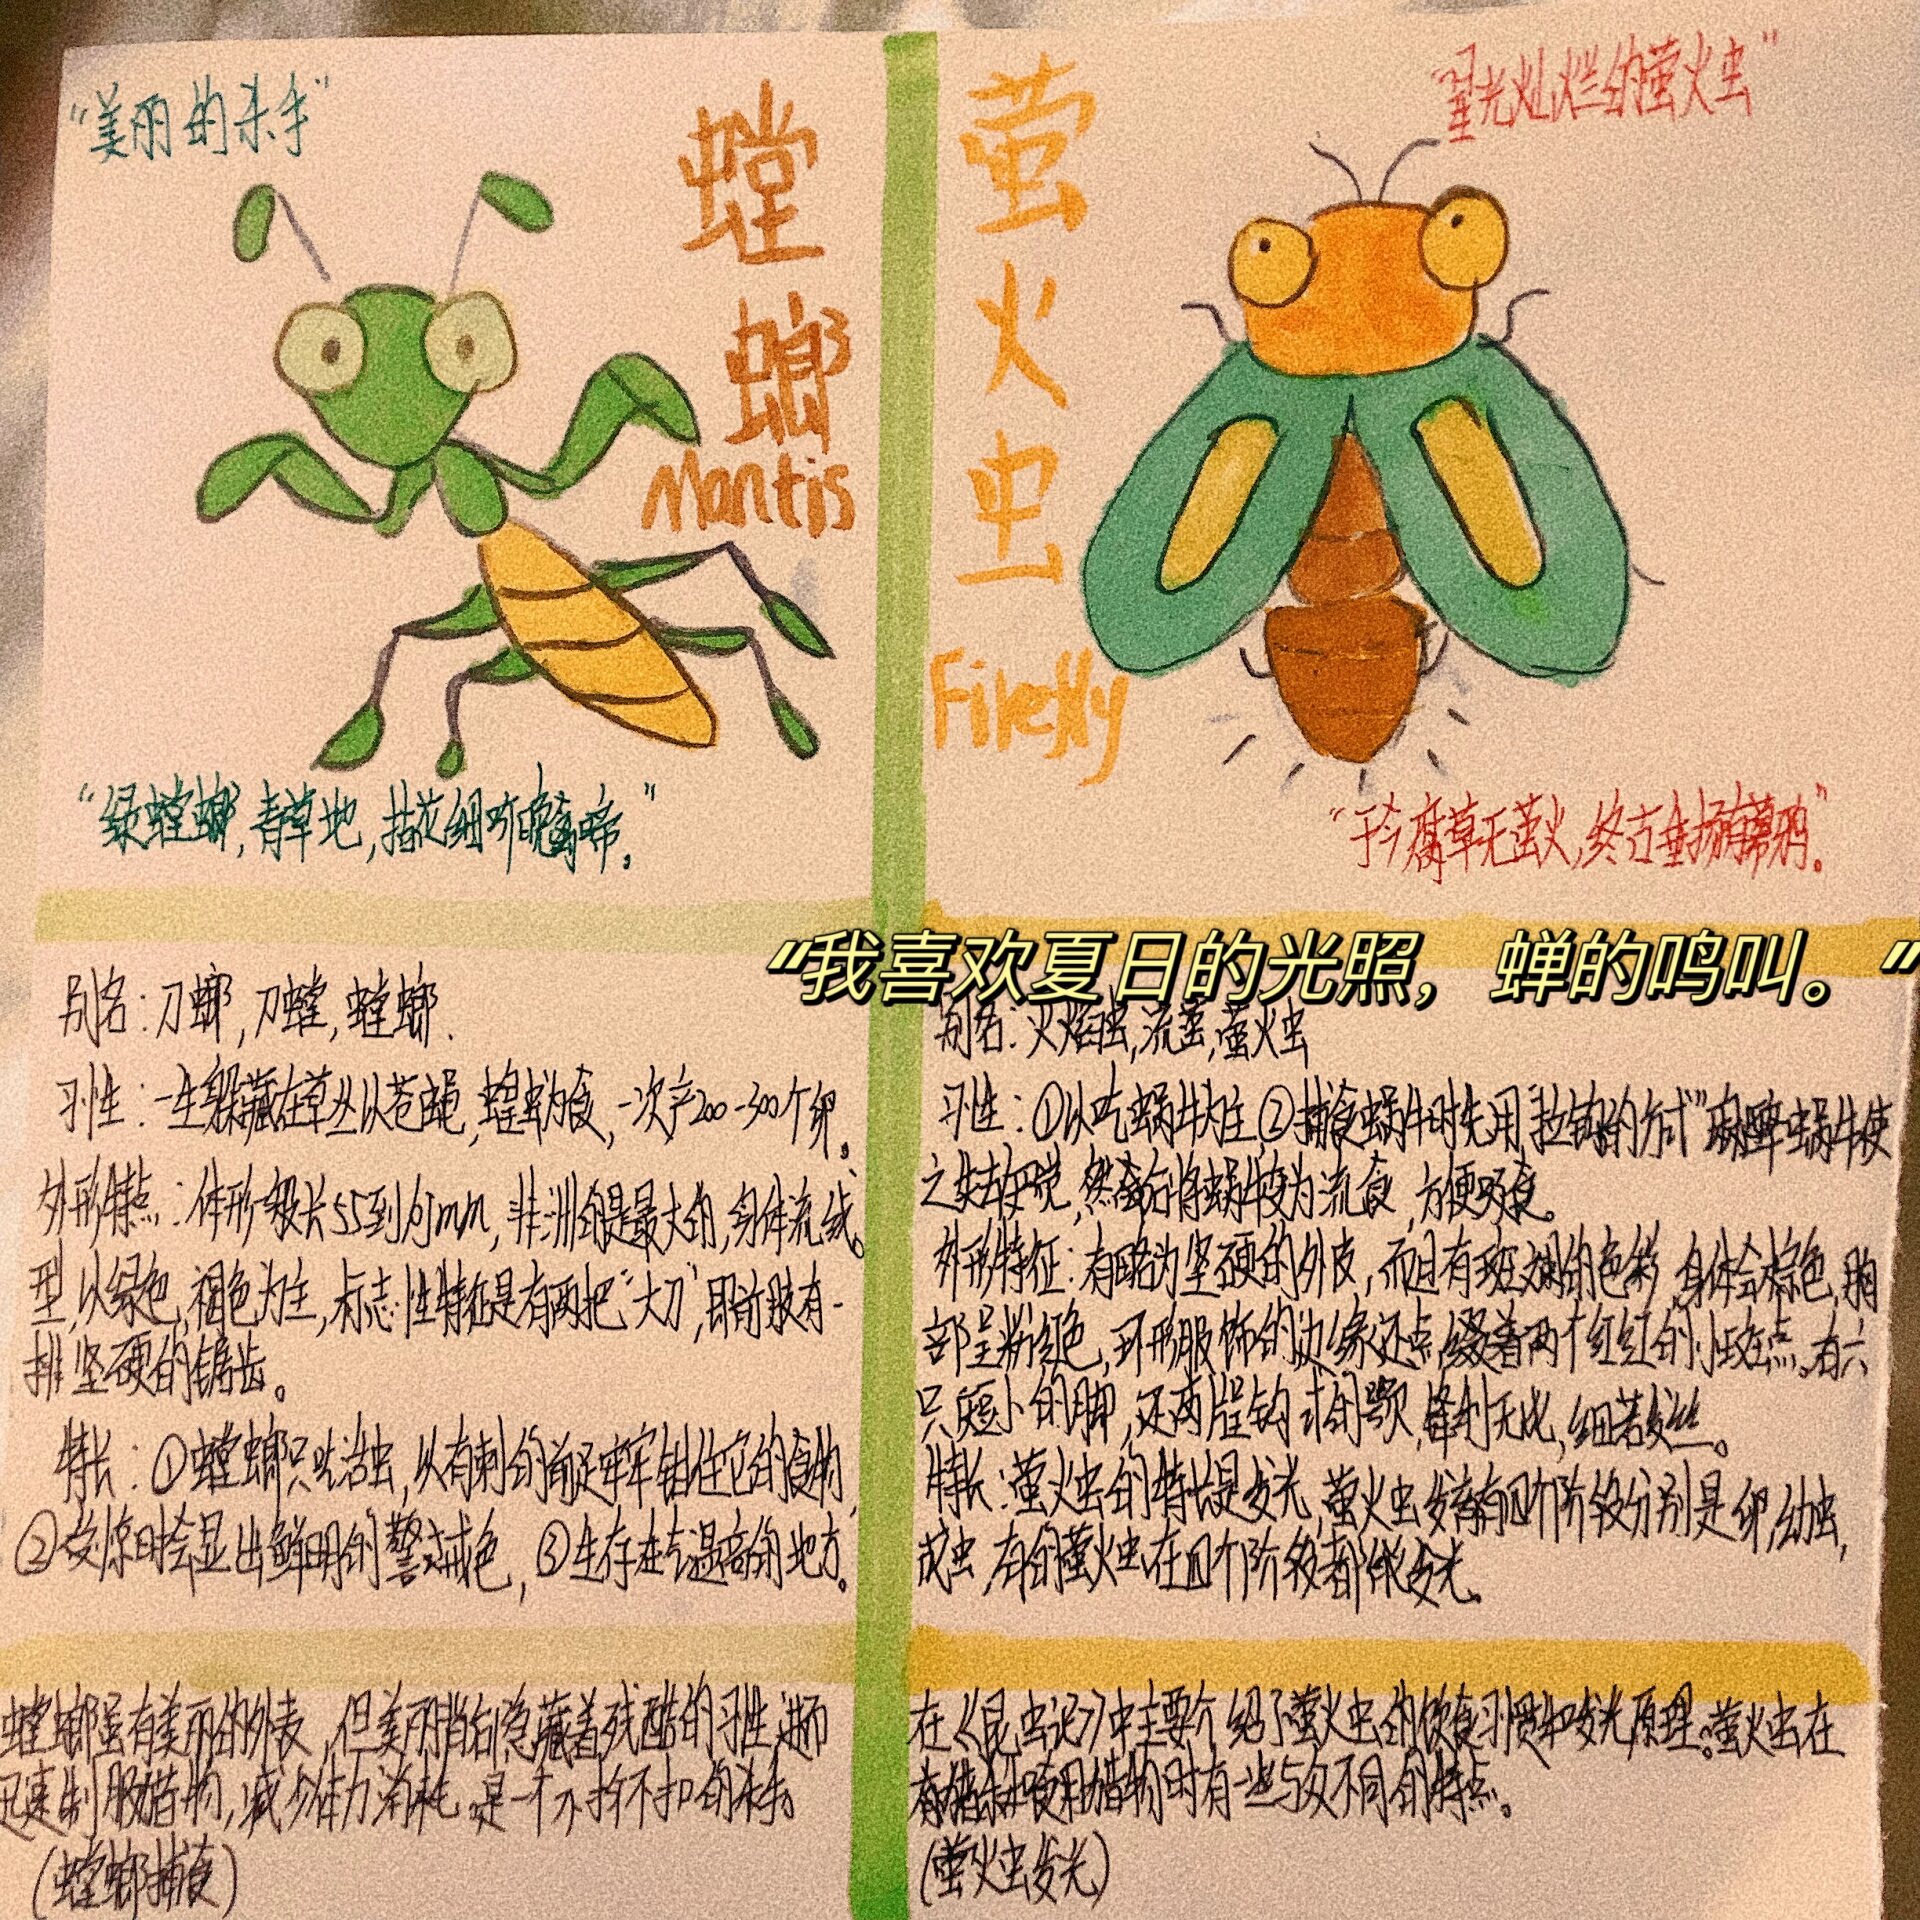 "美丽的杀手"
螳
螂
Mantis
"绿螳螂,青草地,拈花细听晚莺啼。"
别名:刀螂,刀螳,螳螂.
习性:一生躲藏在草丛以苍蝇,蝗虫为食,一次产200-300个卵。
外形特点:体形极长55到105mm,非洲的是最大的,身体流线
型,以绿色,褐色为主,标志性特征是有两把"大刀",即前肢有一
排坚硬的锯齿。
特长:①螳螂只吃活虫,以有刺的前足牢牢钳住它的食物,
②受惊时会显出鲜明的警戒色,③生存在气温高的地方。
螳螂虽有美丽的外表,但美丽背后隐藏着残酷的习性,进而
迅速制服猎物,减少体力消耗,是一个不折不扣的杀手。
(螳螂捕食)
"星光灿烂的萤火虫"
萤
火
虫
Firefly
"于今腐草无萤火,终古垂杨有暮鸦。"
"我喜欢夏日的光照,蝉的鸣叫。"
别名:火焰虫,流萤,萤火虫
习性:①以吃蜗牛为主,②捕食蜗牛时先用"拉钩的方式"麻醉蜗牛使
之失去知觉,然后将蜗牛变为流食,方便吸食。
外形特征:有略为坚硬的外皮,而且有斑斓的色彩,身体会棕色,胸
部呈粉红色,环形服饰的边缘还点缀着两个红红的小斑点。有六
只短小的脚,还两片呈钩状的颚,锋利无比,细若发丝。
特长:萤火虫的特长是发光,萤火虫发育有四个阶段分别是卵,幼虫,
成虫,有的萤火虫在四个阶段都能发光。
在《昆虫记》中主要介绍了萤火虫的饮食习惯和发光原理。萤火虫在
猎物时有一些与众不同的特点。
(萤火虫发光)